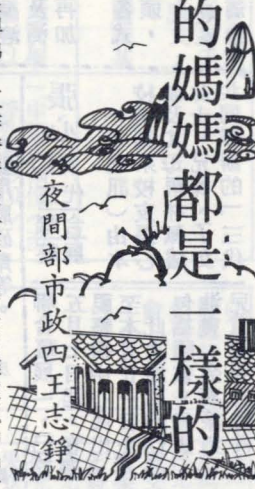 的媽媽都是一樣的
夜間部市政四王志錚